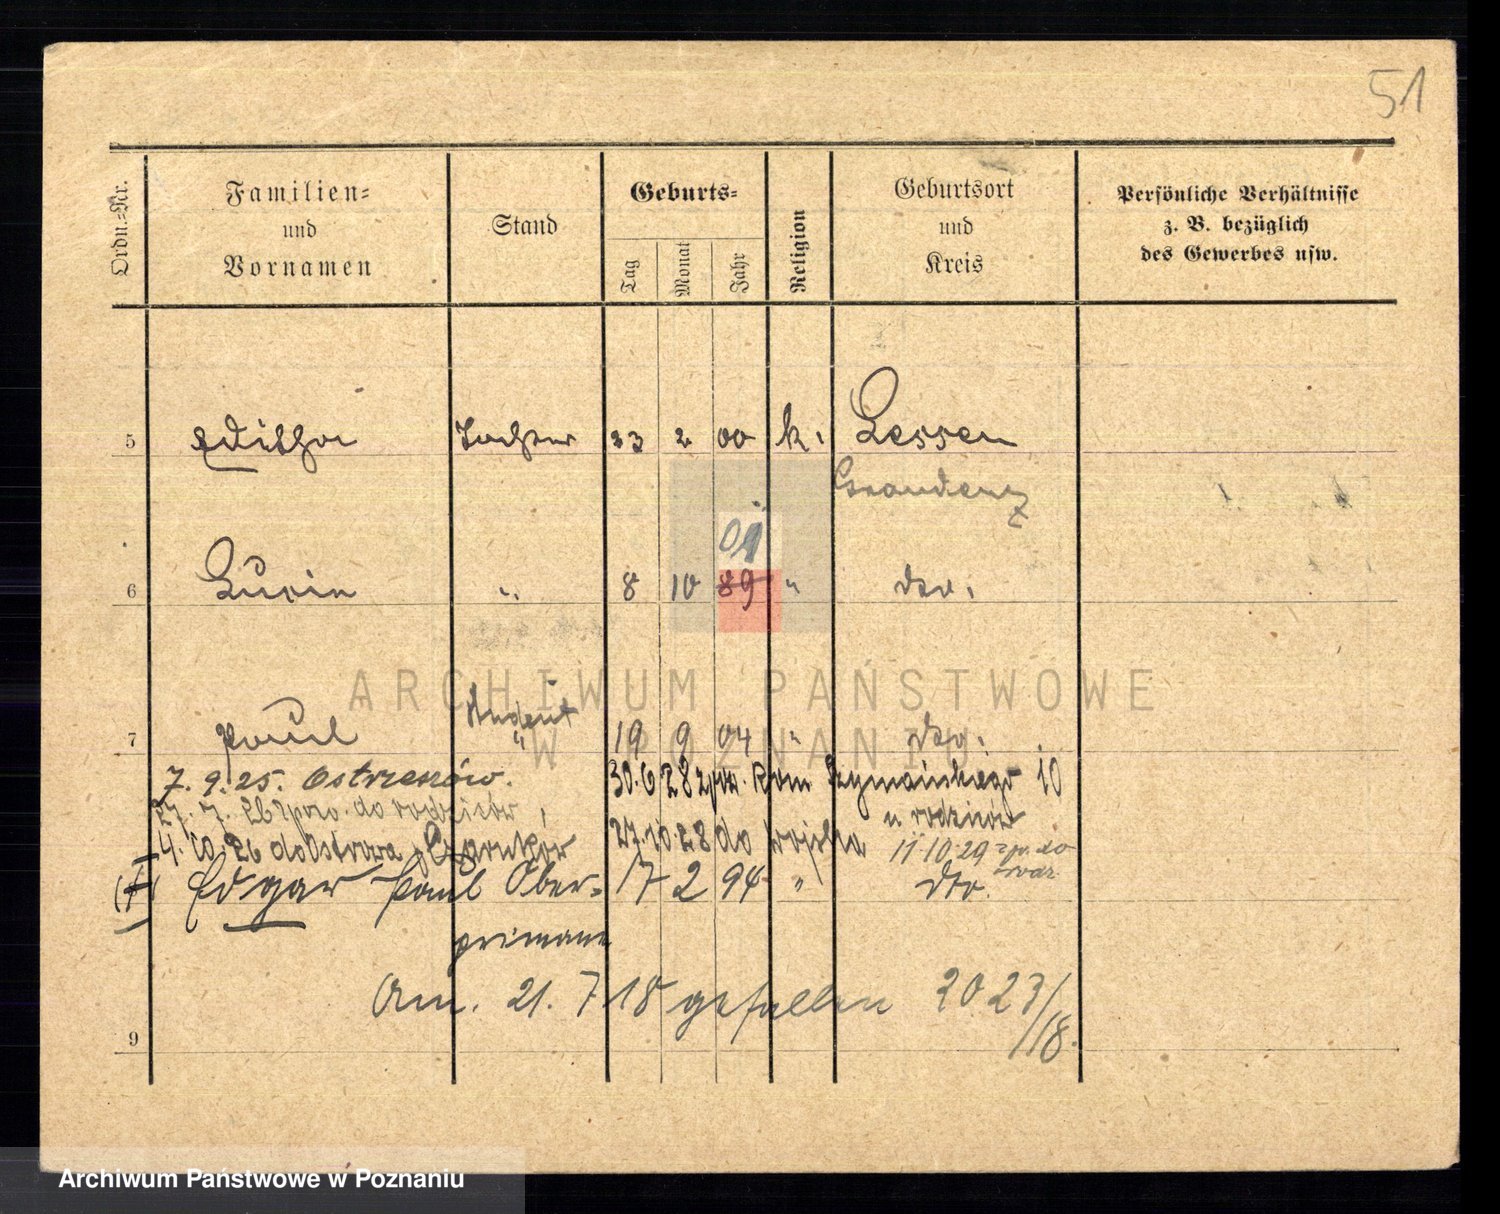 51
Ordn.=Nr.
Familien=
und
Vornamen
Stand
Geburts=
Tag
Monat
Jahr
Religion
Geburtsort
und
Kreis
Persönliche Verhältnisse
z. B. bezüglich
des Gewerbes usw.
5 Editha Tochter 23 2 00 k. Lessen
Graudenz
01
6 Lucie " 8 10 89 " dto.
ARCHIWUM PAŃSTWOWE
W POZNANIU
Student
7 Paul " 19 9 04 " dto.
7. 9. 25. Ostrzeszów. 30. 6 28 Szymańskiego 10
27. 7. 26 do rodziców, u rodziców
4. 10. 26 do Ostrowa 27. 10. 28 do wojska 11 10. 29
Edgar Paul Ober= 17 2 94 " dto.
primaner
Am. 21. 7. 18 gefallen 2023/18.
9
Archiwum Państwowe w Poznaniu